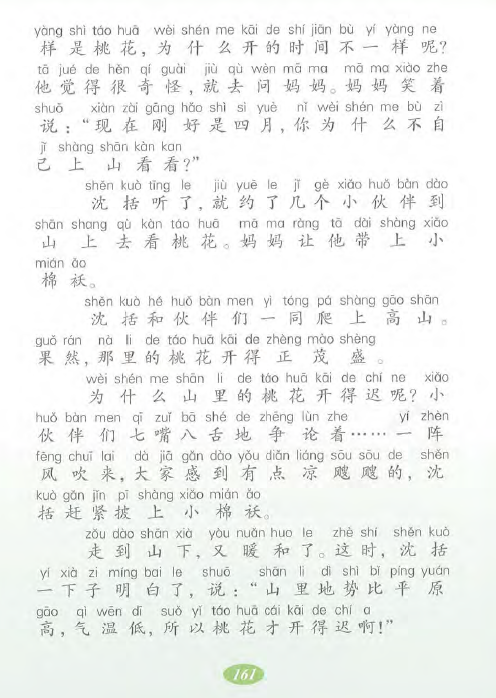 yàng shì táo huā wèi shén me kāi de shí jiān bù yí yàng ne
样是桃花，为什么开的时间不一样呢？
tā jué de hěn qí guài jiù qù wèn mā ma mā ma xiào zhe
他觉得很奇怪，就去问妈妈。妈妈笑着
shuō xiàn zài gāng hǎo shì sì yuè nǐ wèi shén me bù zì
说：“现在刚好是四月，你为什么不自
jǐ shàng shān kàn kan
己上山看看？”
shěn kuò tīng le jiù yuē le jǐ gè xiǎo huǒ bàn dào
沈括听了，就约了几个小伙伴到
shān shang qù kàn táo huā mā ma ràng tā dài shàng xiǎo
山上去看桃花。妈妈让他带上小
mián ǎo
棉袄。
shěn kuò hé huǒ bàn men yì tóng pá shàng gāo shān
沈括和伙伴们一同爬上高山。
guǒ rán nà li de táo huā kāi de zhèng mào shèng
果然，那里的桃花开得正茂盛。
wèi shén me shān li de táo huā kāi de chí ne xiǎo
为什么山里的桃花开得迟呢？小
huǒ bàn men qī zuǐ bā shé de zhēng lùn zhe yí zhèn
伙伴们七嘴八舌地争论着……一阵
fēng chuī lai dà jiā gǎn dào yǒu diǎn liáng sōu sōu de shěn
风吹来，大家感到有点凉飕飕的，沈
kuò gǎn jǐn pī shàng xiǎo mián ǎo
括赶紧披上小棉袄。
zǒu dào shān xià yòu nuǎn huo le zhè shí shěn kuò
走到山下，又暖和了。这时，沈括
yí xià zi míng bai le shuō shān li dì shì bǐ píng yuán
一下子明白了，说：“山里地势比平原
gāo qì wēn dī suǒ yǐ táo huā cái kāi de chí a
高，气温低，所以桃花才开得迟啊！”
161